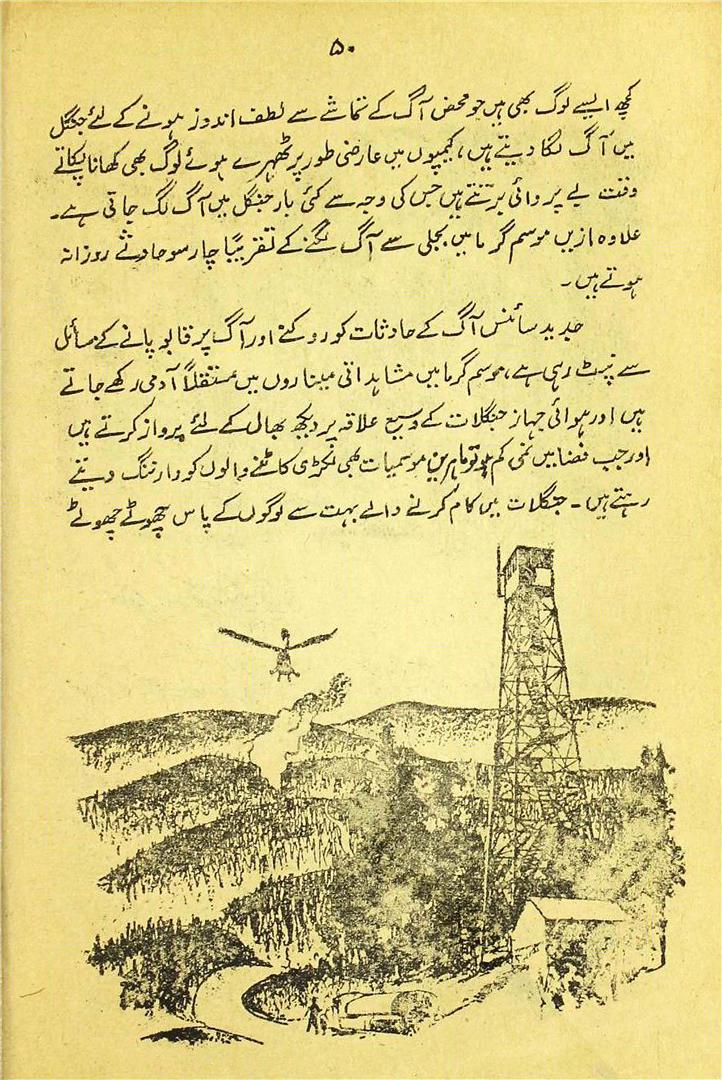 ۵۰
کچھ ایسے لوگ بھی ہیں جو محض آگ کے تماشے سے لطف اندوز ہونے کے لئے جنگل
میں آگ لگا دیتے ہیں، کیمپوں میں عارضی طور پر ٹھہرے ہوئے لوگ بھی کھانا پکاتے
وقت بے پروائی برتتے ہیں جس کی وجہ سے کئی بار جنگل میں آگ لگ جاتی ہے۔
علاوہ ازیں موسم گرما میں بجلی سے آگ لگنے کے تقریباً چار سو حادثے روزانہ
ہوتے ہیں۔
جدید سائنس آگ کے حادثات کو روکنے اور آگ پر قابو پانے کے مسائل
سے نپٹ رہی ہے، موسم گرما میں مشاہداتی میناروں میں مستقلاً آدمی رکھے جاتے
ہیں اور ہوائی جہاز جنگلات کے وسیع علاقہ پر دیکھ بھال کے لئے پرواز کرتے ہیں
اور جب فضا میں نمی کم ہو تو ماہرین موسمیات بھی لکڑی کاٹنے والوں کو وارننگ دیتے
رہتے ہیں۔ جنگلات میں کام کرنے والے بہت سے لوگوں کے پاس چھوٹے چھوٹے